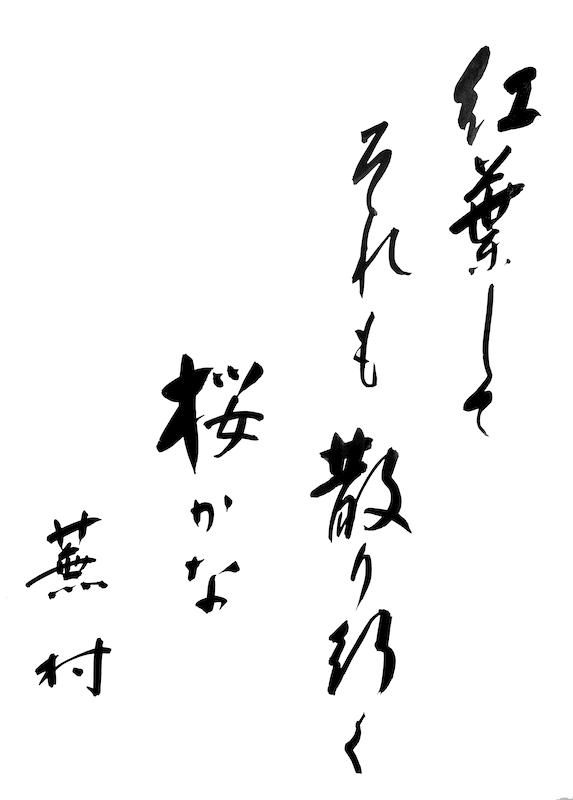 紅葉して
それも散り行く
桜かな
蕪村